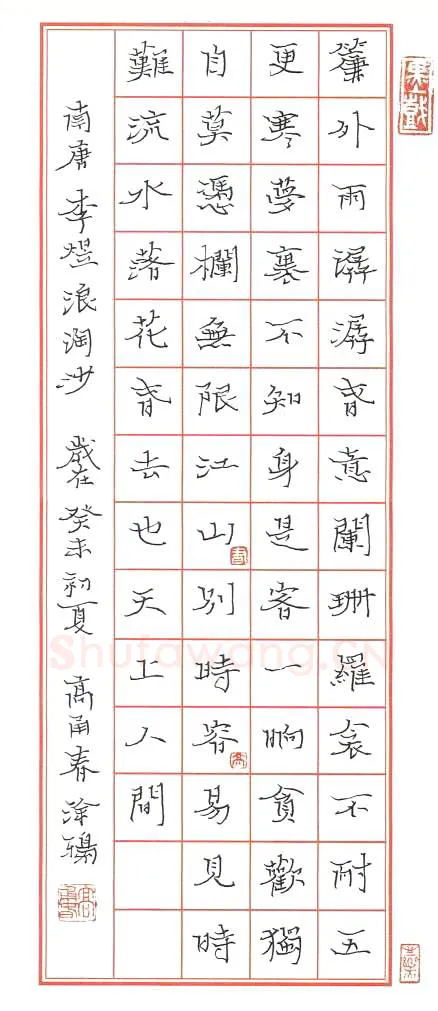 簾外雨潺潺春意闌珊羅衾不耐五
更寒夢裏不知身是客一晌貪歡獨
自莫憑欄無限江山別時容易見時
難流水落花春去也天上人間
南唐李煜浪淘沙 歲在癸未初夏 高甬春塗鴉
Shufawang.CN